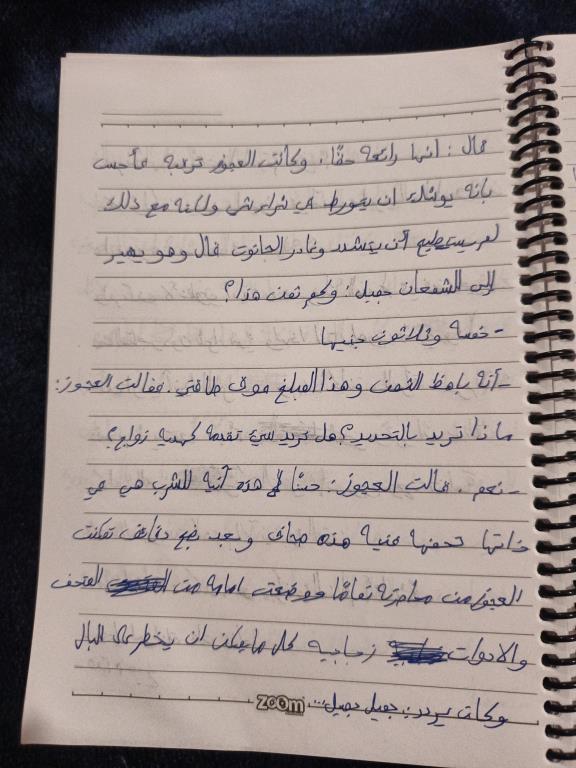 قال : انها رائعة حقًا، وكانت العجوز ترقبه فأحس
بانه يوشك ان يتورط في شراء شيء ولكنه مع ذلك
لم يستطيع أن يتشدد ويغادر الحانوت قال وهو يشير
إلى الشمعدان جميل : وكم ثمن هذا؟
- خمسة وثلاثون جنيها
- أنه باهظ الثمن وهذا المبلغ فوق طاقتي. فقالت العجوز:
ماذا تريد بالتحديد؟ هل تريد شيء تقدمه كهدية زواج؟
- نعم. قالت العجوز: حسنًا هذه آنية للشرب هي في
ذاتها تحفه فنية هذه صحاف وبعد بضع دقائق تمكنت
العجوز من محاصرته تمامًا ووضعت امامه من التحف
والادوات زجاجيه كل ما يمكن ان يخطر على البال
وكان يردد: جميل جميل...
ZOOM